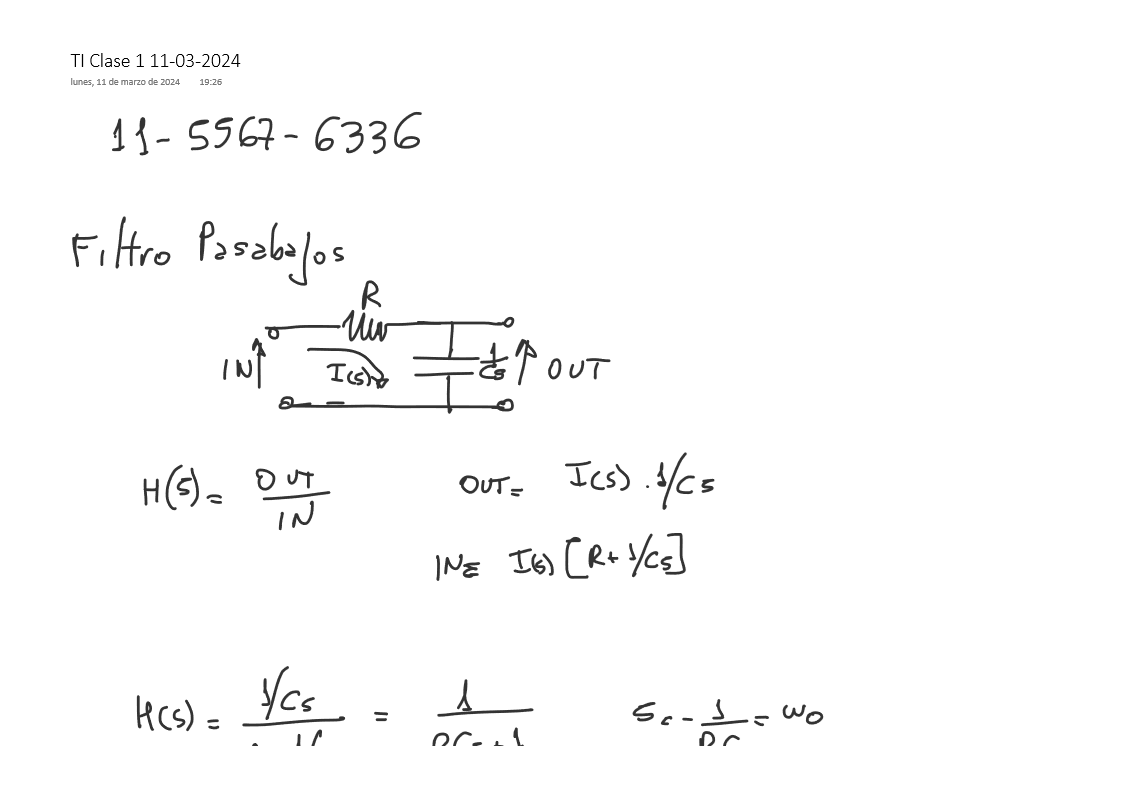 TI Clase 1 11-03-2024
lunes, 11 de marzo de 2024 19:26
11-5567-6336
Filtro Pasabajos
R
IN I(s) 1/Cs OUT
H(s) = OUT/IN OUT = I(s) . 1/Cs
IN = I(s) [R + 1/Cs]
H(s) = 1/Cs = 1 = ω0